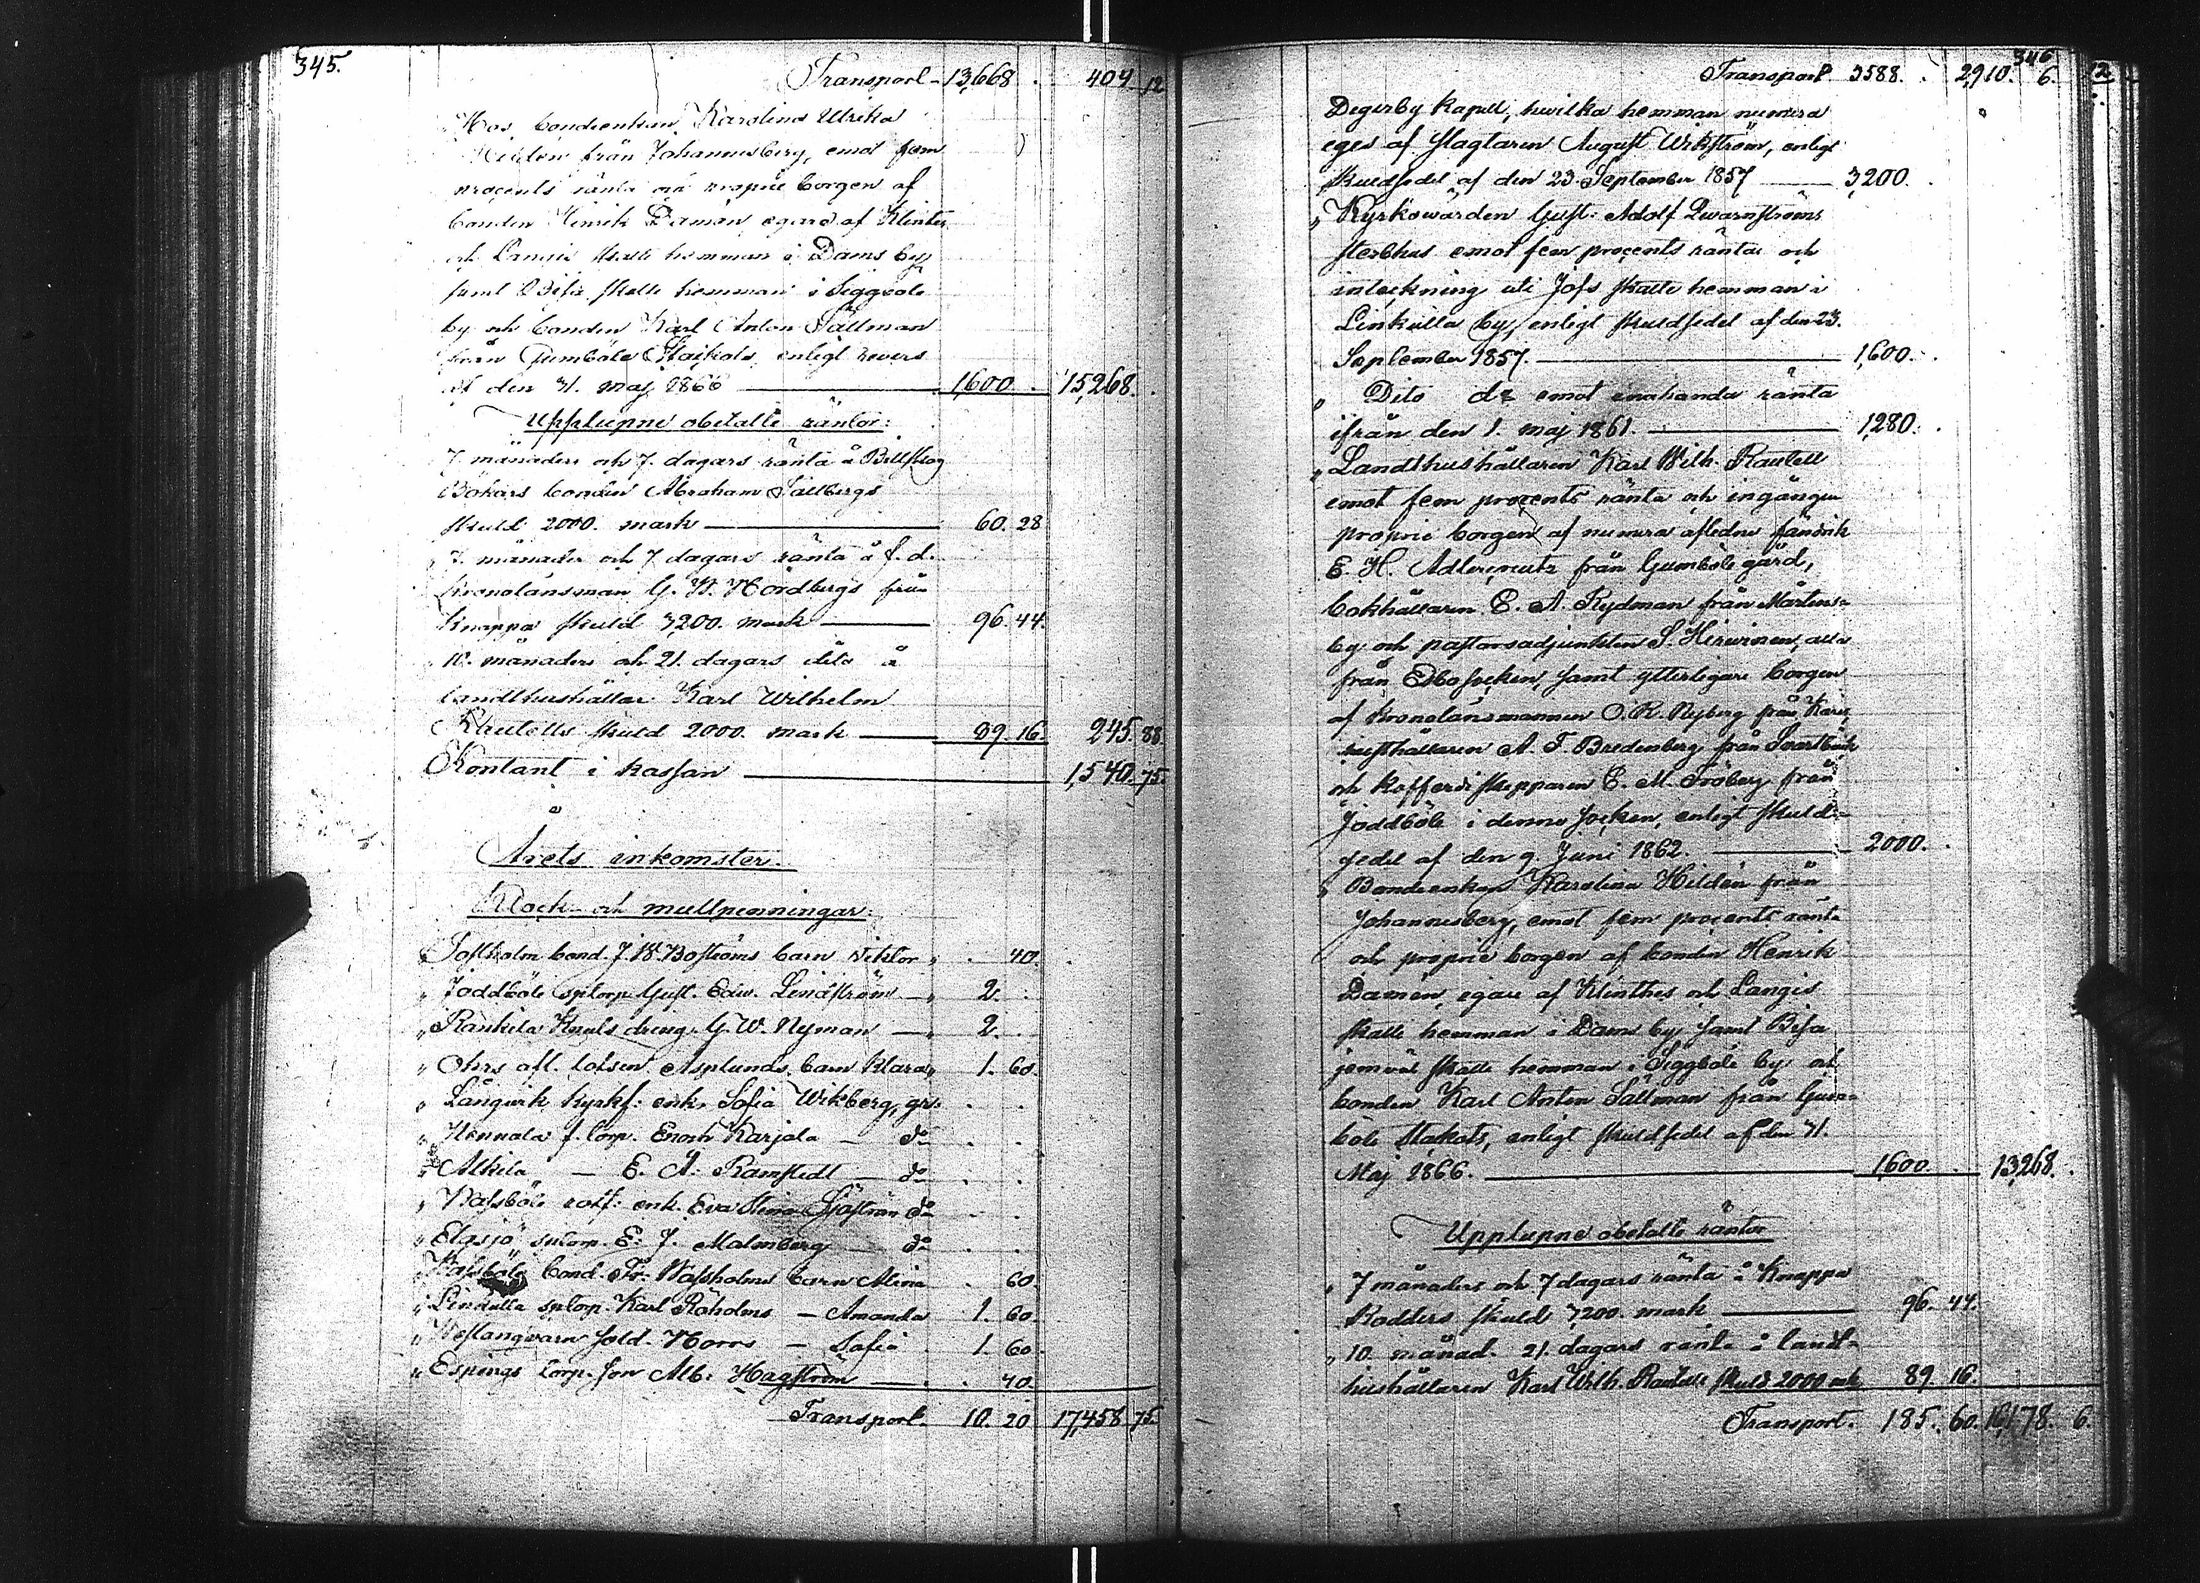 345.
Transport 13,668 . 404 12
Hos bondeenkan Karolina Ulrika
Hildén från Johannesberg, emot fem
procents ränta och proprie borgen af
bonden Hinrik Damén egare af Klinthes
och Langis skatte hemman i Dams by
samt Bisa skatte hemman i Siggböle
by och bonden Karl Anton Sällman
från Gumböle Stakots enligt revers
af den 31. maj 1866 1,600 . 15,268. .
Upplupne obetalte räntor:
7. månaders och 7. dagars ränta å Billskog
Bökars bonden Abraham Sällbergs
skuld 2000. mark 60. 28
" 7. månaders och 7 dagars ränta å f. d.
kronolänsman G. W. Nordbergs från
Knappa skuld 3,200. mark 96. 44.
" 10. månaders och 21. dagars dito å
landthushållar Karl Wilhelm
Rautells skuld 2000. mark 89. 16. 245. 88.
Kontant i kassan 1,540. 75.
Årets inkomster.
Klock- och mullpenningar:
Joskolm bond. J. W. Boströms barn Viktor " . 40.
" Joddböle sptorp. Gust. Edv. Lindström " 2. .
" Rankila Knuts dreng. G. W. Nyman " 2. .
" Ohrs afl. lotsen Asplunds barn Klara " 1. 60.
" Långvik kyrkf: enk. Sofia Wikberg, gr: . .
" Hennala f. torp. Enoch Karjala — do . .
" Alkila — E. A. Ramstedt — do . .
" Wassböle rotf: enk. Eva Stina Sjöström do . .
" Elgsjö sptorp. E. J. Malmberg — do . .
" Wassböle bond. Fr. Wassholms barn Alina . 60.
" Linkulla sptorp. Karl Röholms — Amanda 1. 60.
" Westangvarn sold. Norrs — Sofia . 1. 60.
" Espings torp. son Alb: Hagström . 40.
Transport. 10. 20 17,458 75.
346
Transport 3588. . 2,910. 6.
Degerby kapell, hvilka hemman numera
eges af slagtaren August Wikström, enligt
skuldsedel af den 23 September 1857 3,200. .
" Kyrkowärden Gust: Adolf Qwarnströms
sterbhus emot fem procents ränta och
inteckning uti Jofs skatte hemman i
Linkulla by, enligt skuldsedel af den 23.
September 1857. 1,600. .
" Dito do emot enahanda ränta
ifrån den 1. maj 1861. 1,280. .
" Landthushållaren Karl Wilh. Rautell
emot fem procents ränta och ingången
proprie borgen af numera afledne fändrik
E. H. Adlercreutz från Gumböle gård,
bokhållaren E. A. Rydman från Mårtens-
by och pastorsadjunkten S. Hirvinen, alla
från Esbo socken, samt ytterligare borgen
af kronolänsmannen O. R. Nyberg från Karis,
rusthållaren A. F. Bredenberg från Svartbäck
och kofferdi skepparen E. M. Fröberg från
Joddböle i denne socken, enligt skuld-
sedel af den 9. Juni 1862. 2000. .
" Bondeenkan Karolina Hildén från
Johannesberg, emot fem procents ränta
och proprie borgen af bonden Henrik
Damén, egare af Klinthes och Langis
skatte hemman i Dams by samt Bisa
jemväl skatte hemman i Siggböle by och
bonden Karl Anton Sällman från Gum-
böle Stakots, enligt skuldsedel af den 31.
Maj 1866. 1,600 . 13,268. .
Upplupne obetalte räntor
" 7 månaders och 7 dagars ränta å Knappa
Rodders skuld 3200. mark 96. 44.
" 10. månad. 21. dagars ränta å landt-
hushållaren Karl Wilh. Rautells skuld 2000 mk 89. 16.
Transport. 185. 60. 16,178. 6.